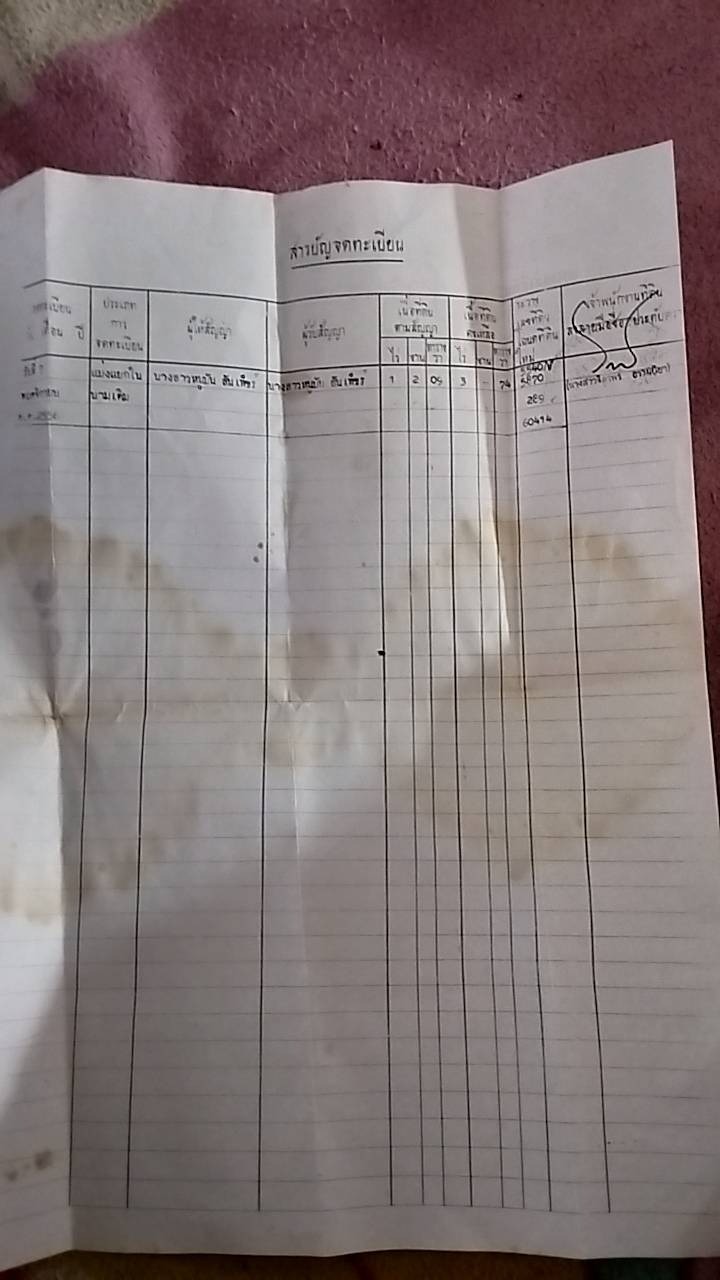 สารบัญจดทะเบียน
จดทะเบียน ประเภท ผู้ให้สัญญา ผู้รับสัญญา เนื้อที่ดิน เนื้อที่ดิน ระวาง เจ้าพนักงานที่ดิน
เดือน ปี การ ตามสัญญา คงเหลือ เลขที่ดิน ลงลายมือชื่อ ประทับตรา
จดทะเบียน โฉนดที่ดิน
ไร่ งาน ตารางวา ไร่ งาน ตารางวา ใหม่
แบ่งแยกใน นางสาวหนูมัน นางสาวหนูมัน 1 2 09 3 - 74 5870
นามเดิม 289
60494